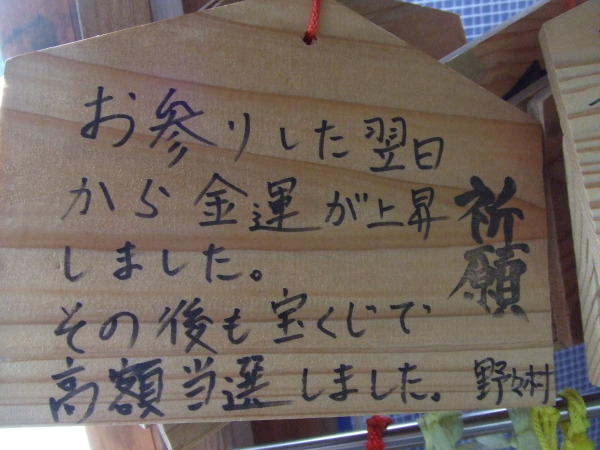 祈願
お参りした翌日
から金運が上昇
しました。
その後も宝くじで
高額当選しました。
野々村